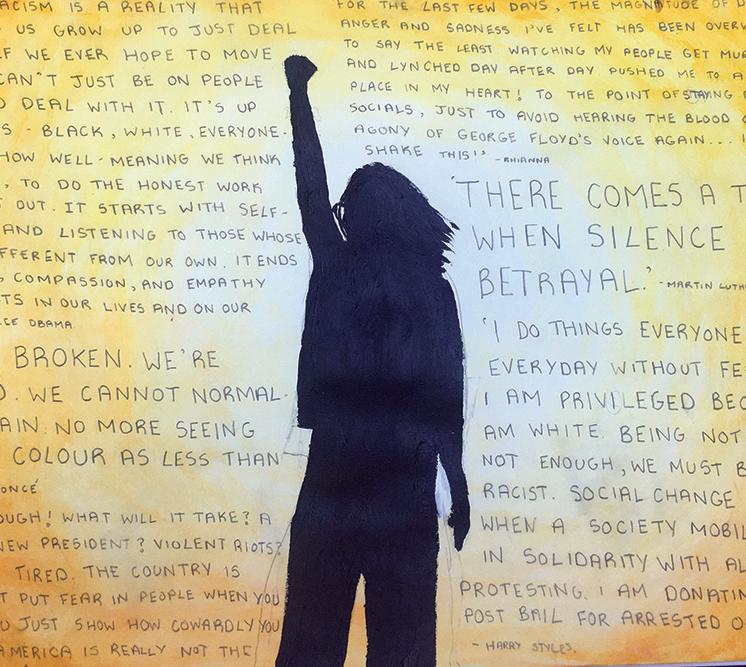 ACISM IS A REALITY THAT
US GROW UP TO JUST DEAL
LF WE EVER HOPE TO MOVE
CAN'T JUST BE ON PEOPLE
DEAL WITH IT. IT'S UP
S - BLACK, WHITE, EVERYONE -
HOW WELL-MEANING WE THINK
, TO DO THE HONEST WORK
OUT. IT STARTS WITH SELF-
AND LISTENING TO THOSE WHOSE
FFERENT FROM OUR OWN. IT ENDS
, COMPASSION, AND EMPATHY
TS IN OUR LIVES AND ON OUR
OBAMA
BROKEN. WE'RE
D. WE CANNOT NORMAL-
AIN. NO MORE SEEING
COLOUR AS LESS THAN
ONCÉ
OUGH! WHAT WILL IT TAKE? A
NEW PRESIDENT? VIOLENT RIOTS?
TIRED. THE COUNTRY IS
T PUT FEAR IN PEOPLE WHEN YOU
U JUST SHOW HOW COWARDLY YOU
AMERICA IS REALLY NOT THE
FOR THE LAST FEW DAYS, THE MAGNITUDE OF D
ANGER AND SADNESS I'VE FELT HAS BEEN OVERW
TO SAY THE LEAST WATCHING MY PEOPLE GET MUR
AND LYNCHED DAY AFTER DAY PUSHED ME TO A
PLACE IN MY HEART! TO THE POINT OF STAYING
SOCIALS, JUST TO AVOID HEARING THE BLOOD C
AGONY OF GEORGE FLOYD'S VOICE AGAIN... I
SHAKE THIS!' - RHIANNA
'THERE COMES A T
WHEN SILENCE
BETRAYAL.' - MARTIN LUTH
'I DO THINGS EVERYONE
EVERYDAY WITHOUT FE
I AM PRIVILEGED BEC
AM WHITE. BEING NOT
NOT ENOUGH, WE MUST B
RACIST. SOCIAL CHANGE
WHEN A SOCIETY MOBIL
IN SOLIDARITY WITH AL
PROTESTING. I AM DONATIN
POST BAIL FOR ARRESTED O
- HARRY STYLES.